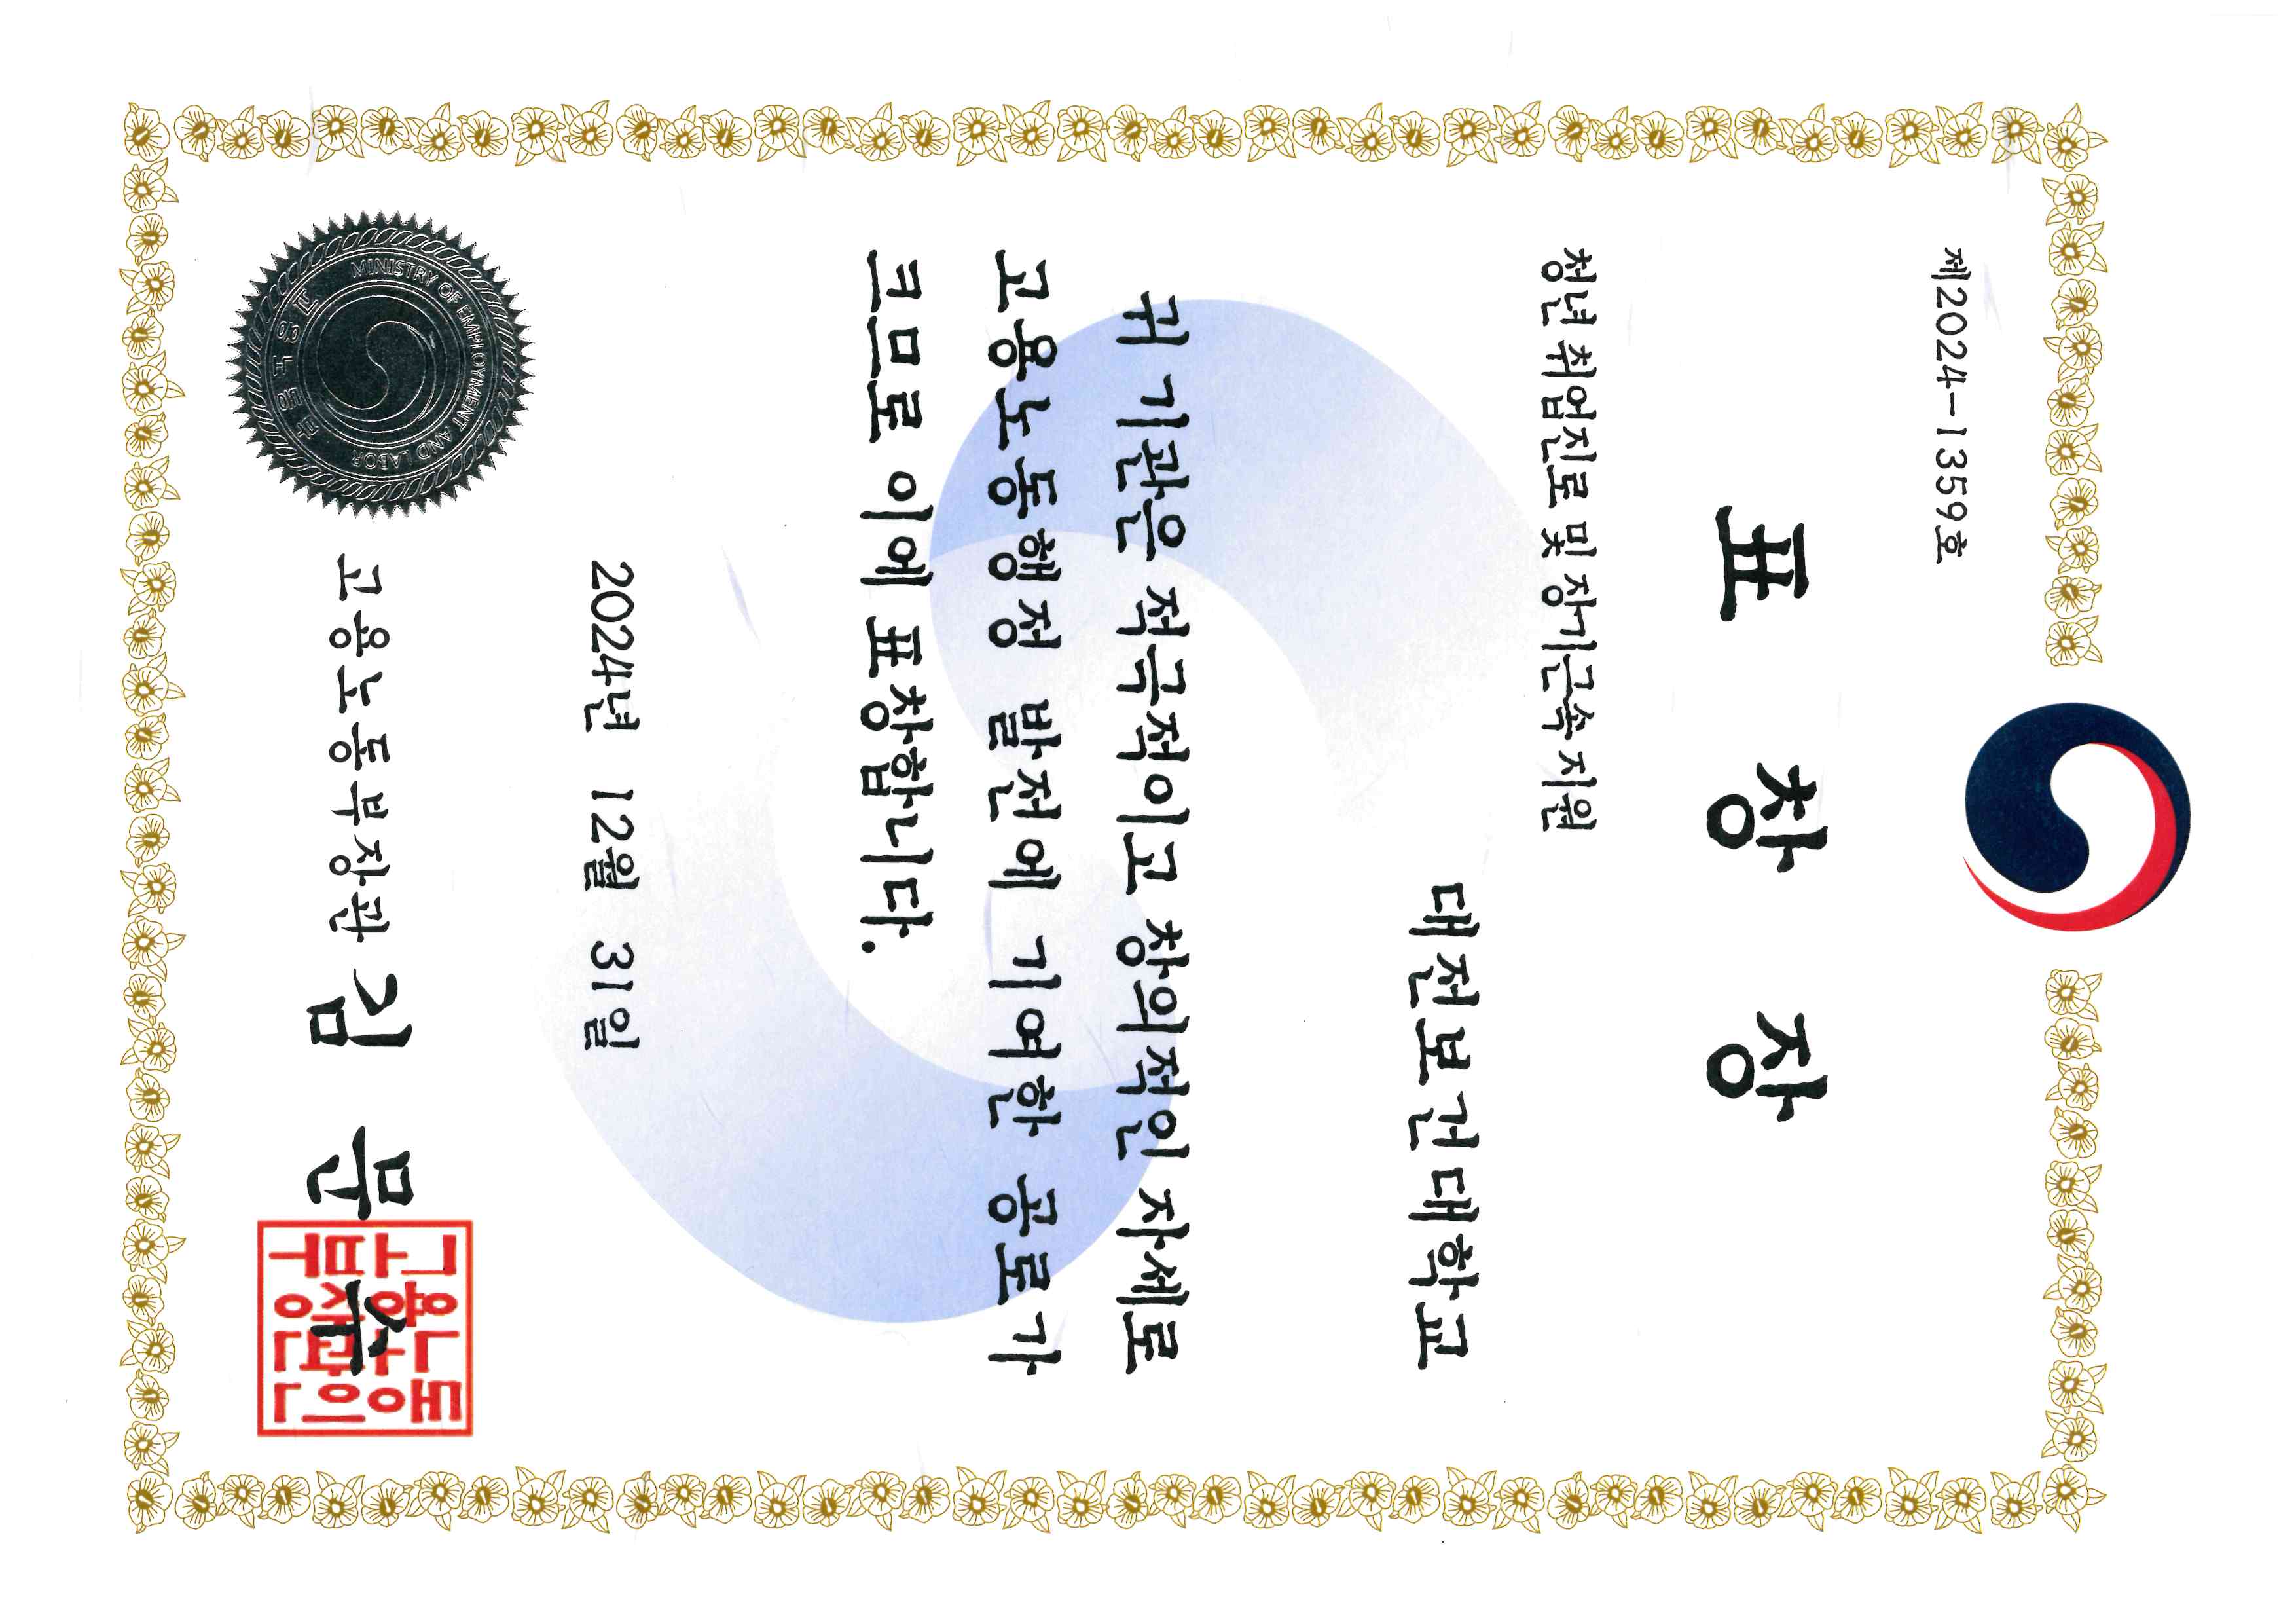 제2024-1359호
표 창 장
청년 취업진로 및 장기근속 지원
대전보건대학교
귀 기관은 적극적이고 창의적인 자세로
고용노동행정 발전에 기여한 공로가
크므로 이에 표창합니다.
2024년 12월 31일
고용노동부장관 김 문 수
고용노동
부장관인
MINISTRY OF EMPLOYMENT AND LABOR